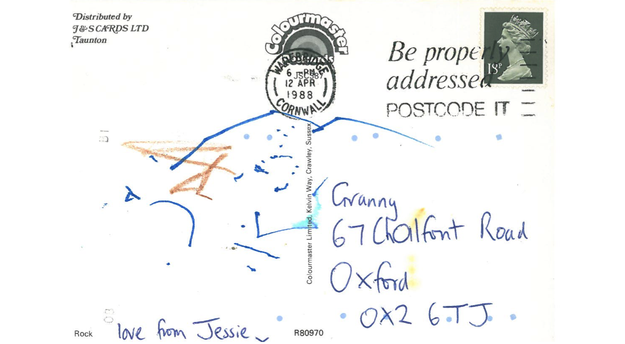 Distributed by
J&S CARDS LTD
Taunton
Colourmaster
WADEBRIDGE
6 PM
12 APR
1988
CORNWALL
Be properly
addressed
POSTCODE IT
18P
Colourmaster Limited, Kelvin Way, Crawley, Sussex
Granny
67 Chalfont Road
Oxford
OX2 6TJ
Rock
love from Jessie
R80970